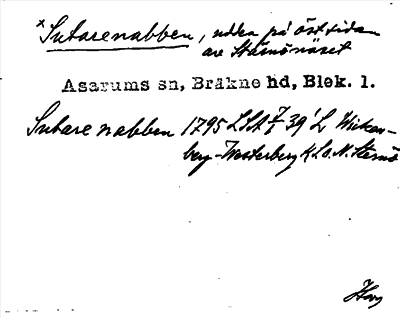 x Sutarenabben, udden på östsidan
av Stärnönäset
Asarums sn, Bräkne hd, Blek. l.
Sutare nabben 1795 LSA 39 L Wicken-
berg-Westerberg KLO. N. Stärnö